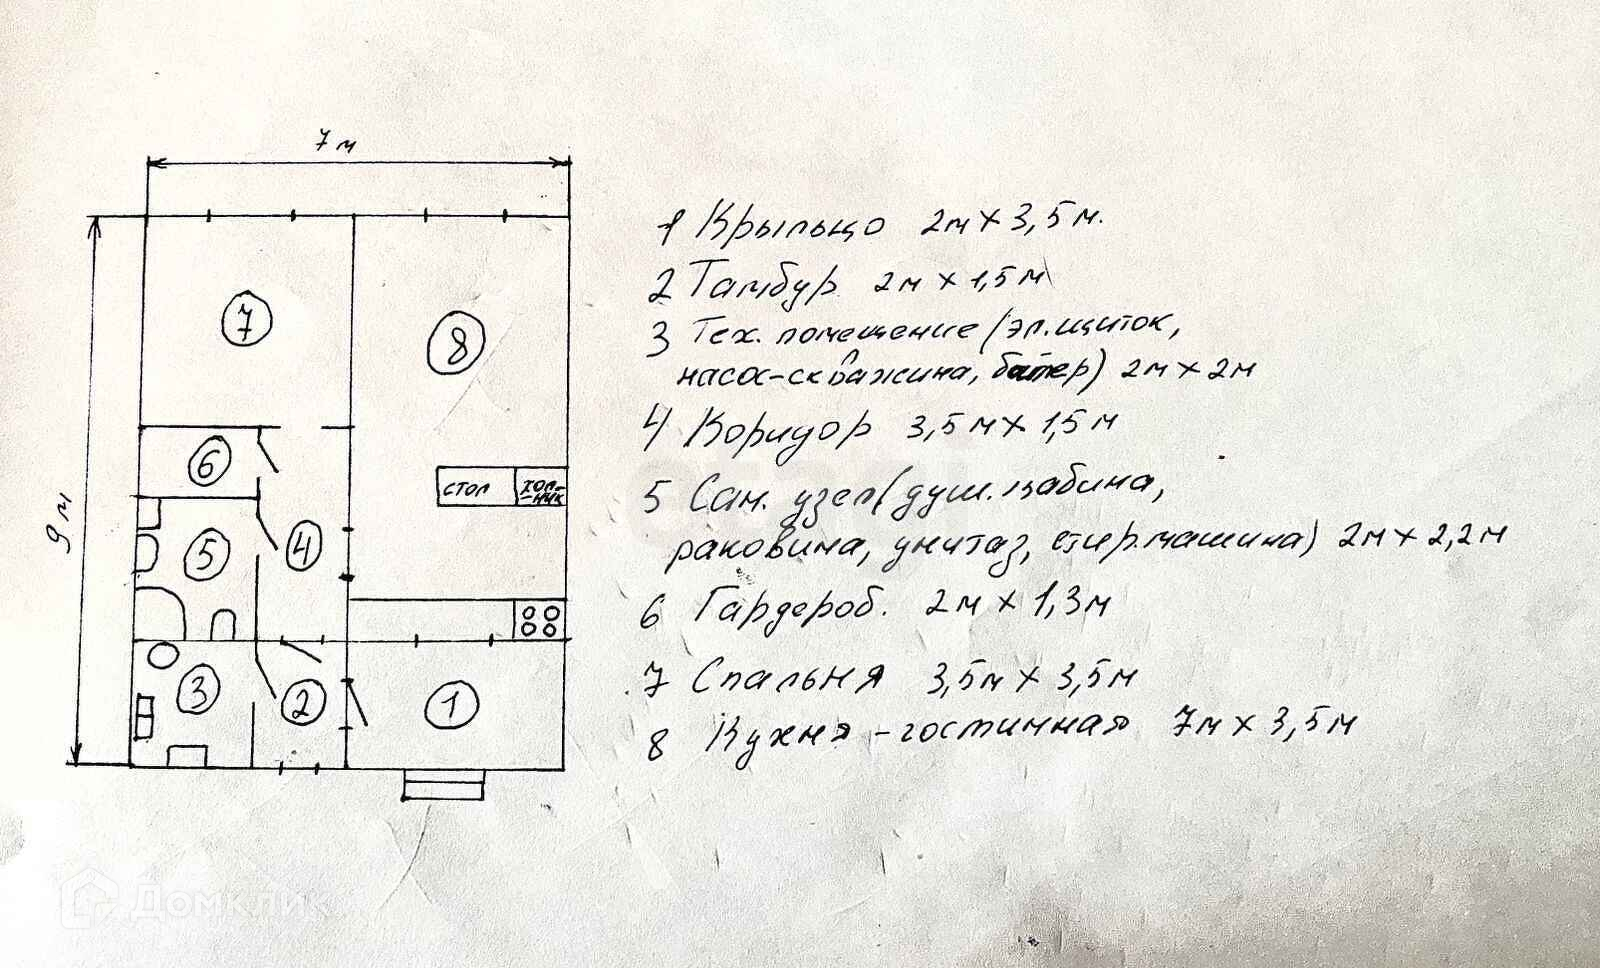 7 м
9 м
7
8
6
стол
хол-
-ник
5
4
3
2
1
1 Крыльцо 2м х 3,5м.
2 Тамбур 2м х 1,5м
3 Тех. помещение (эл.щиток,
насос-скважина, бойлер) 2м х 2м
4 Коридор 3,5м х 1,5м
5 Сан. узел (душ. кабина,
раковина, унитаз, стир.машина) 2м х 2,2м
6 Гардероб. 2м х 1,3м
7 Спальня 3,5м х 3,5м
8 Кухня-гостинная 7м х 3,5м
Домклик